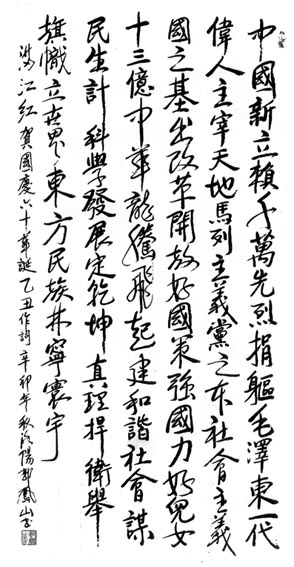 中國新立賴千萬先烈捐軀毛澤東一代
偉人主宰天地馬列主義黨之本社會主義
國之基出改革開放好國策強國力好兒女
十三億中華龍騰飛起建和諧社會謀
民生計科學發展定乾坤真理捍衛舉
旗幟立世界東方民族林寧寰宇
滿江紅賀國慶六十華誕己丑作詩辛卯年秋洛陽鳳山書